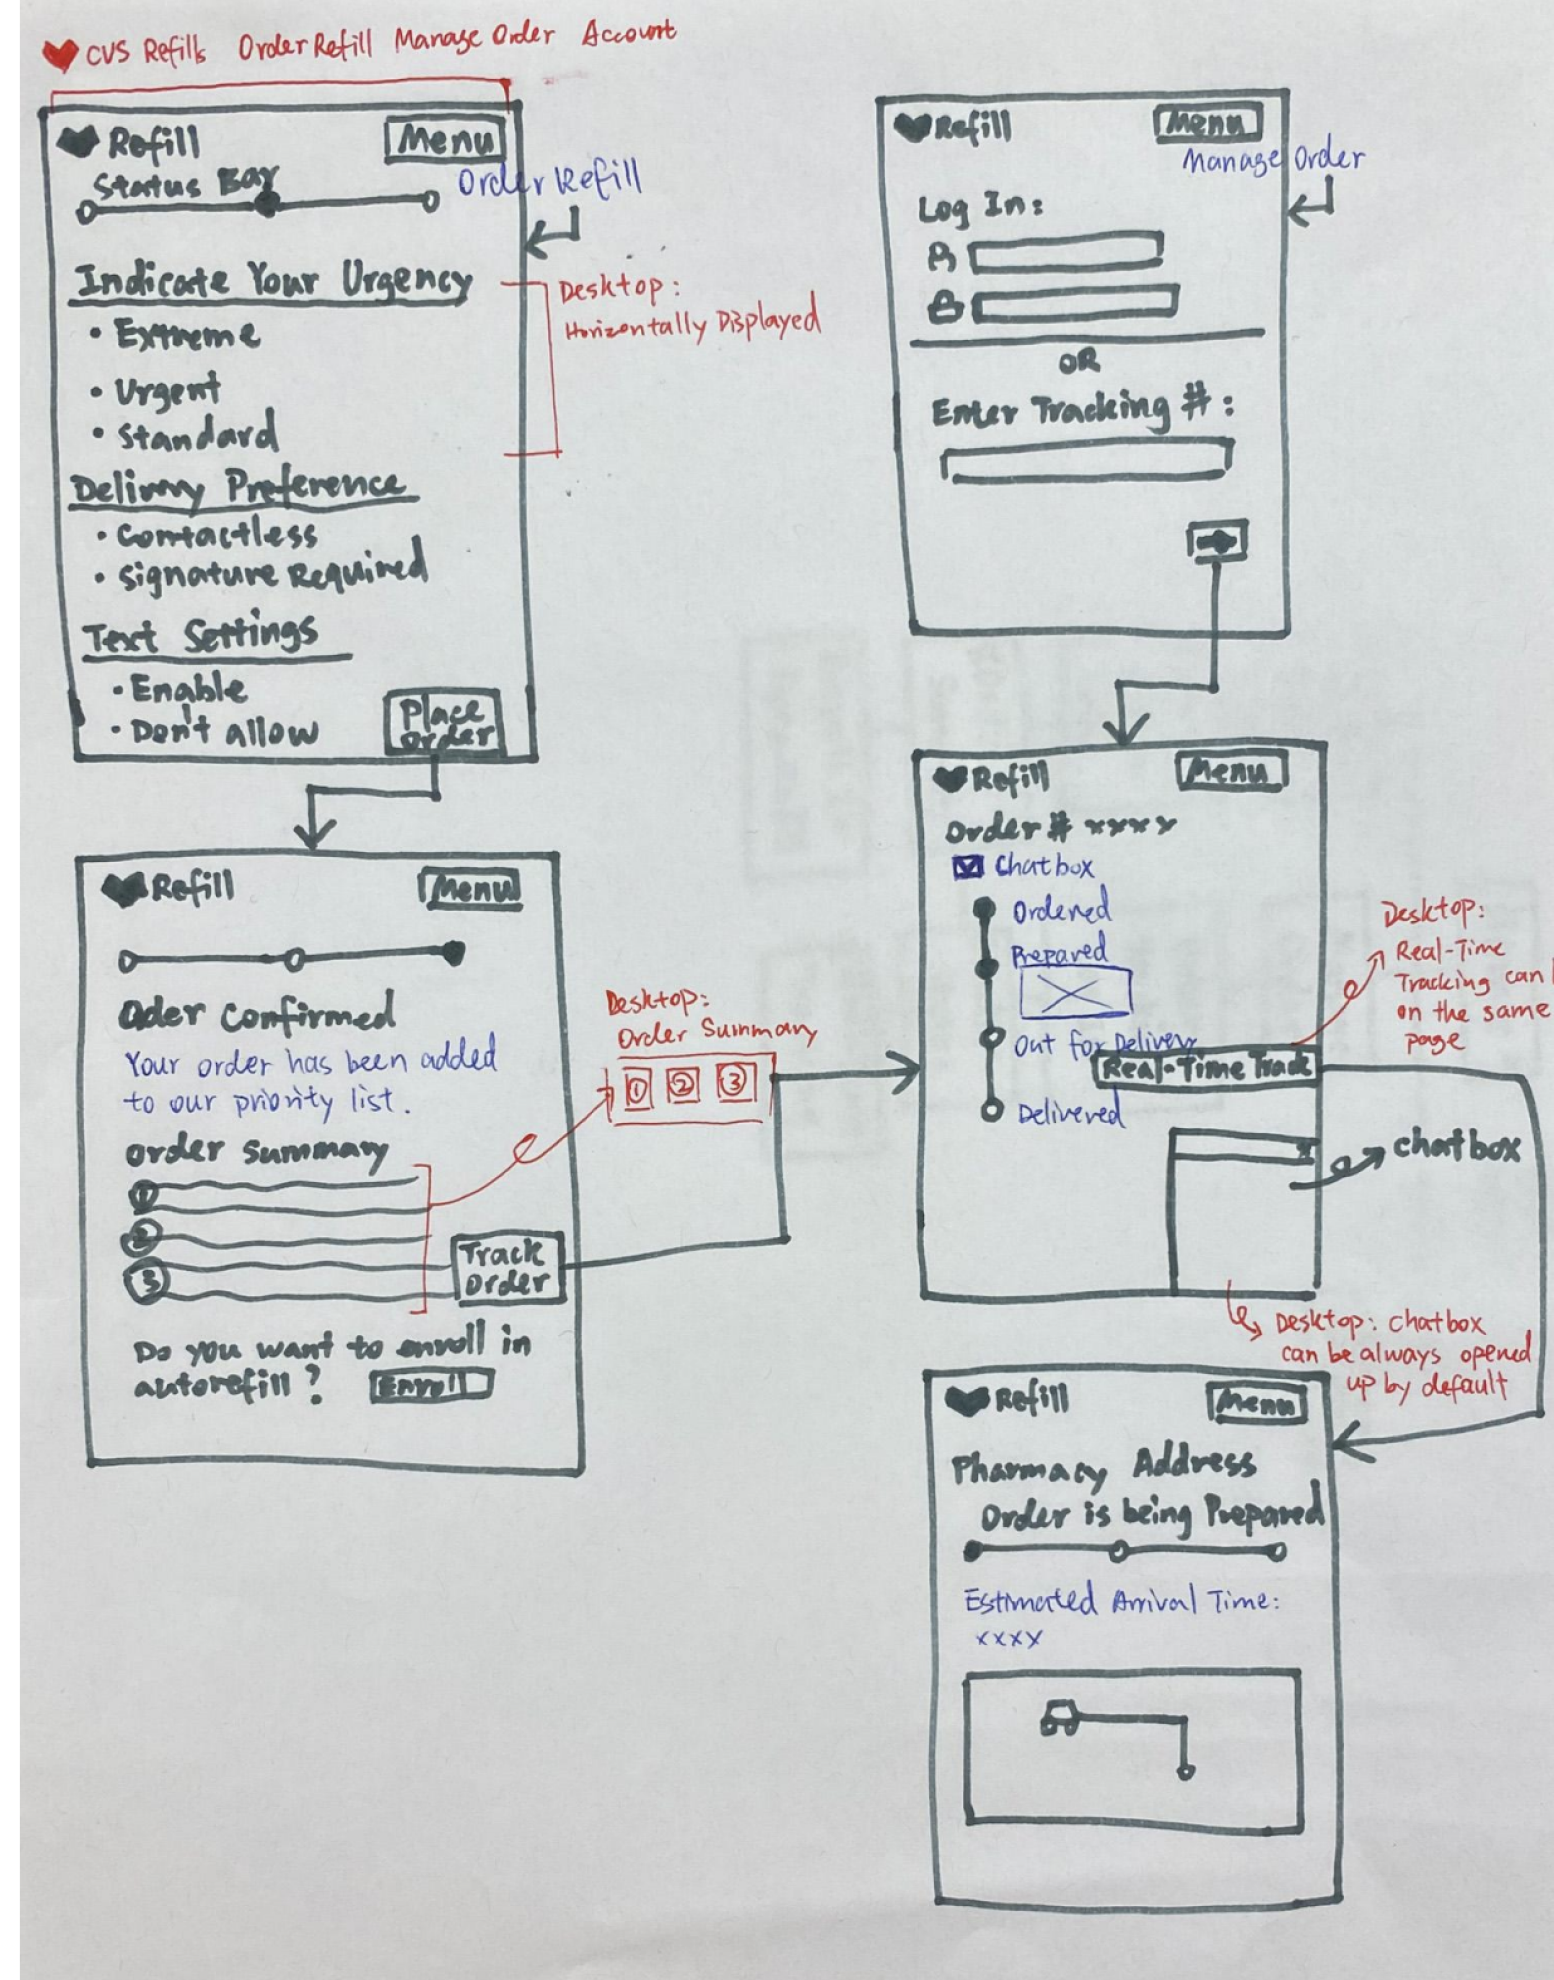 CVS Refills Order Refill Manage Order Account
Refill
Menu
Status Bar
Order Refill
Indicate Your Urgency
• Extreme
• Urgent
• Standard
Desktop:
Horizontally Displayed
Delivery Preference
• Contactless
• Signature Required
Text Settings
• Enable
• Don't allow
Place
Order
Refill
Menu
Oder Confirmed
Your order has been added
to our priority list.
Order Summary
1
2
3
Track
Order
Do you want to enroll in
autorefill?
Enroll
Desktop:
Order Summary
1 2 3
Refill
Menu
Manage Order
Log In:
OR
Enter Tracking #:
Refill
Menu
Order # xxxx
Chatbox
Ordered
Prepared
Out for Delivery
Real-Time Track
Delivered
Desktop:
Real-Time
Tracking can
on the same
page
x
chatbox
Desktop: chatbox
can be always opened
up by default
Refill
Menu
Pharmacy Address
Order is being Prepared
Estimated Arrival Time:
xxxx